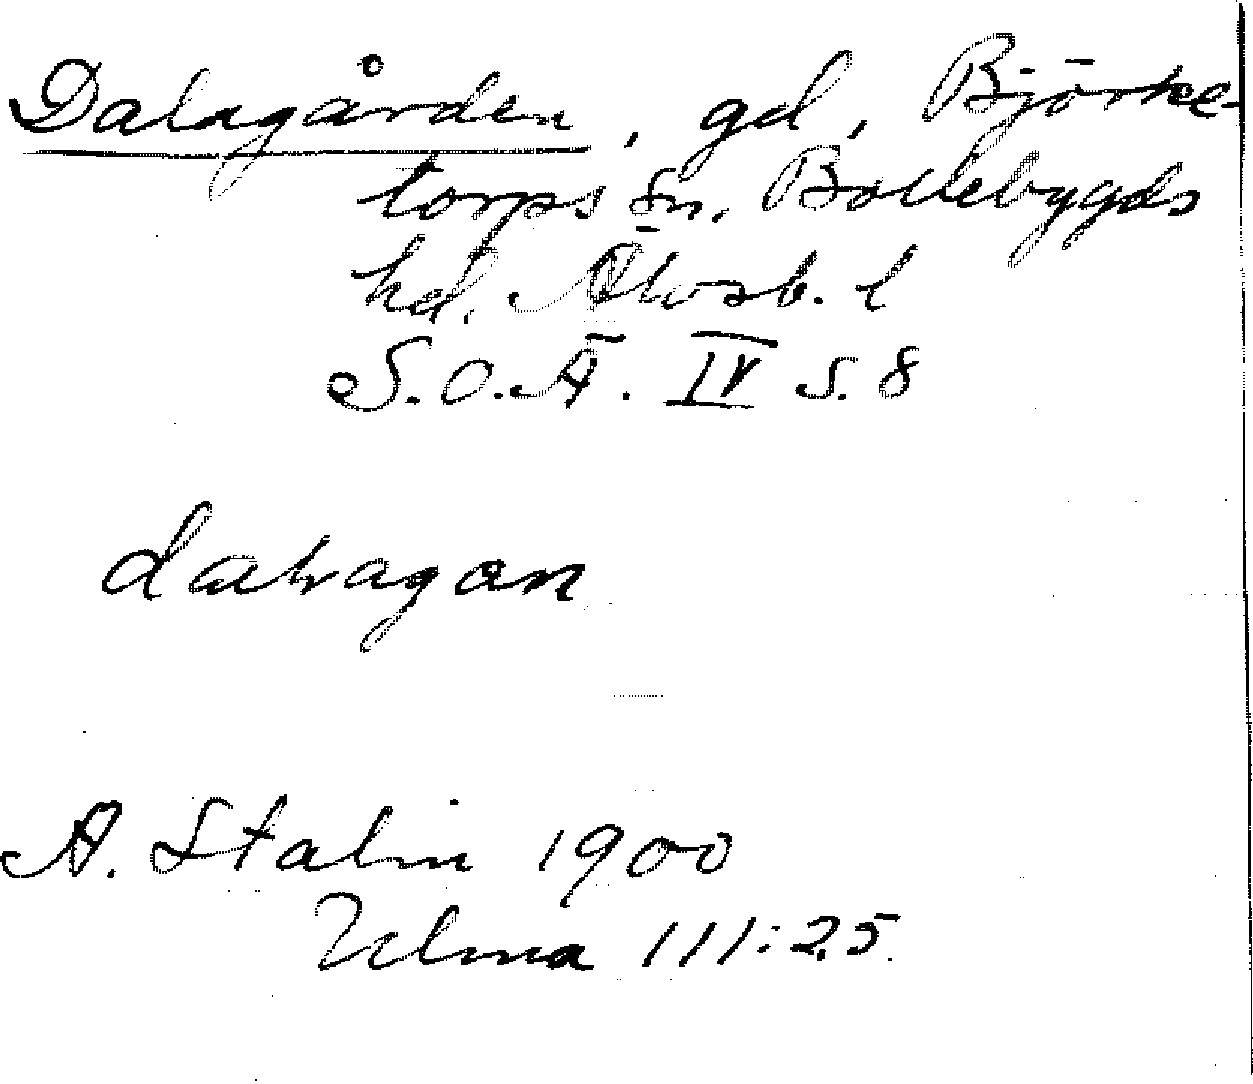 Dalagården, gd, Björke-
torps sn. Bollebygds
hd. Älvsb. l
S.O.Ä. IV s. 8
dalragan
A. Stalin 1900
Ulma 111:25.